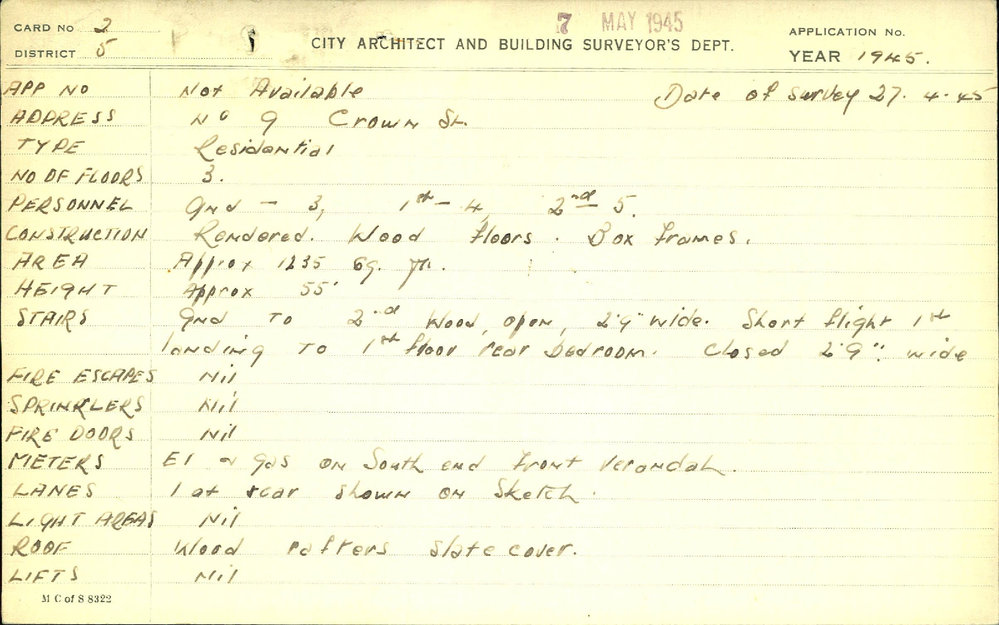 CARD No 2
7 MAY 1945
APPLICATION No.
DISTRICT 5
CITY ARCHITECT AND BUILDING SURVEYOR'S DEPT.
YEAR 1945.
APP NO Not Available Date of Survey 27.4.45
ADDRESS No 9 Crown St.
TYPE Residential
NO OF FLOORS 3.
PERSONNEL Gnd - 3, 1st - 4, 2nd - 5.
CONSTRUCTION Rendered. Wood floors. Box frames.
AREA Approx 1235 sq. ft.
HEIGHT Approx 55'
STAIRS Gnd TO 2nd Wood, open, 2'9" wide. Short flight 1st
landing TO 1st floor rear bedroom. Closed 2'9" wide
FIRE ESCAPES Nil
SPRINKLERS Nil
FIRE DOORS Nil
METERS El & gas on South end front verandah.
LANES 1 at rear shown on Sketch.
LIGHT AREAS Nil
ROOF Wood rafters slate cover.
LIFTS Nil
M C of S 8322